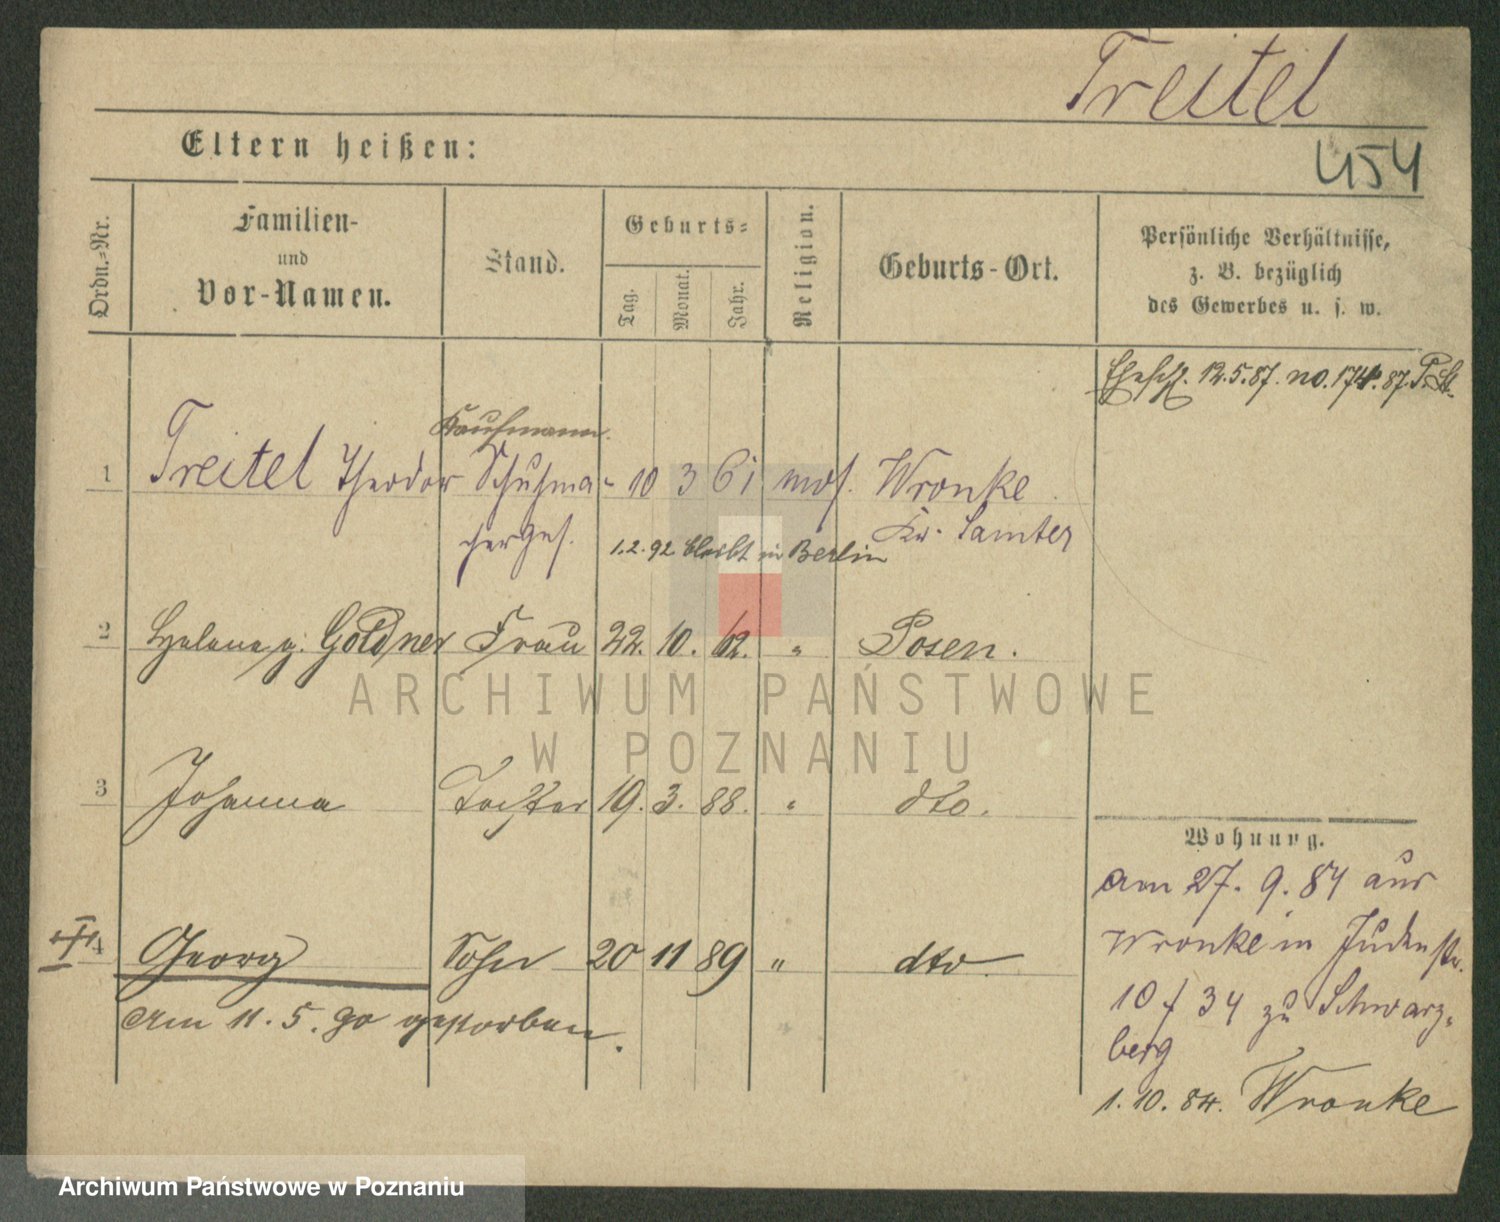 Treitel
Eltern heißen:
454
Ordn.-Nr.
Familien-
und
Vor-Namen.
Stand.
Geburts-
Tag.
Monat.
Jahr.
Religion.
Geburts-Ort.
Persönliche Verhältnisse,
z. B. bezüglich
des Gewerbes u. s. w.
Eheschl. 12.5.87. no. 174. 87. P. St.
Kaufmann.
1 Treitel Theodor Schuhma- 10 3 61 mos. Wronke
cherges. Kr. Samter
1.2.92 bleibt in Berlin
2 Helene g. Goldner Frau 22. 10. 62. " Posen.
ARCHIWUM PAŃSTWOWE
W POZNANIU
3 Johanna Tochter 19. 3. 88. " dto.
Wohnung.
am 27. 9. 84 aus
Wronke in Judenstr.
10 f 34 zu Schwarz-
berg
1. 10. 84. Wronke
4 Georg Sohn 20 11 89 " dto.
am 11. 5. 90 gestorben.
Archiwum Państwowe w Poznaniu